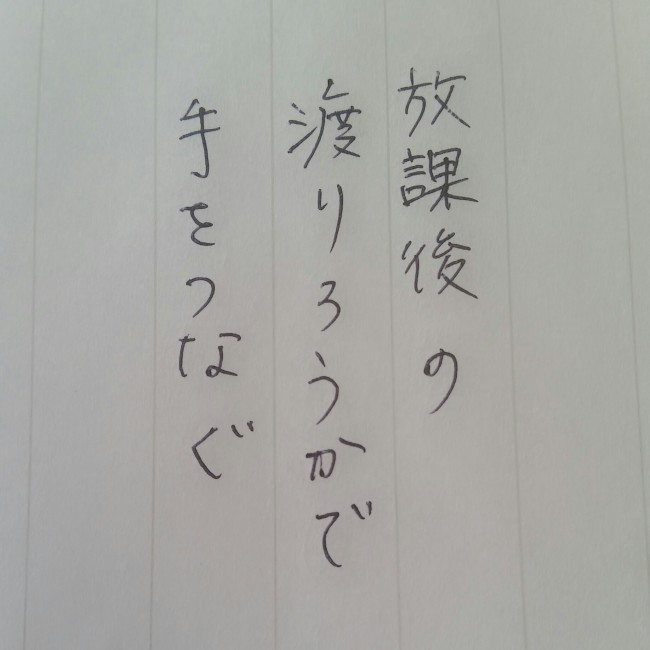 放課後の
渡りろうかで
手をつなぐ